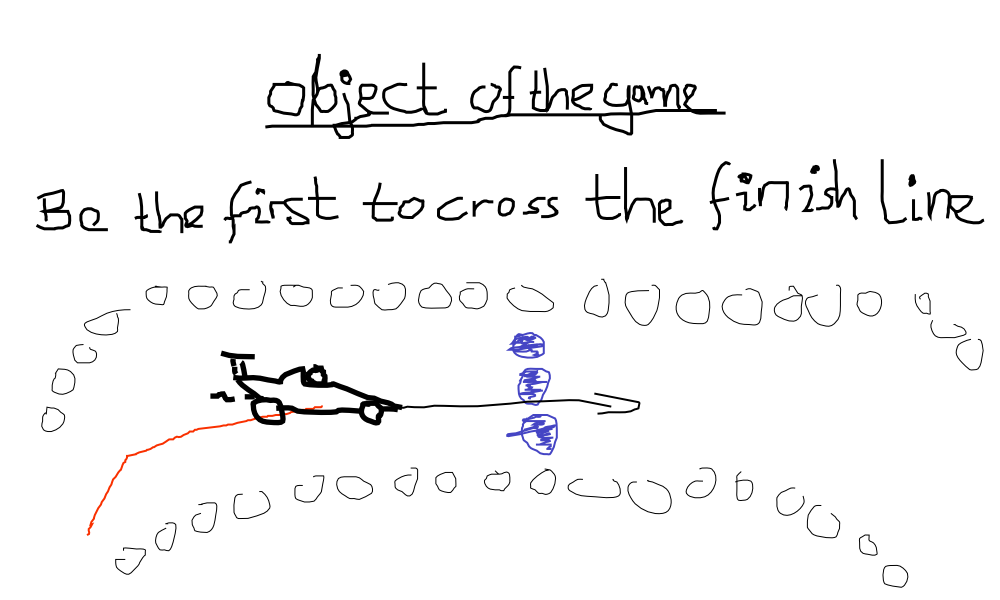 object of the game
Be the first to cross the finish line